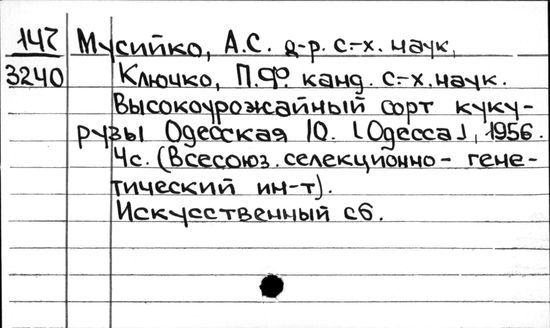 147 Мусийко, А.С. д-р. с.-х. наук,
3240 Ключко, П.Ф. канд. с.-х. наук.
Высокоурожайный сорт куку-
рузы Одесская 10. [Одесса], 1956.
4с. (Всесоюз. селекционно- гене-
тический ин-т).
Искусственный сб.